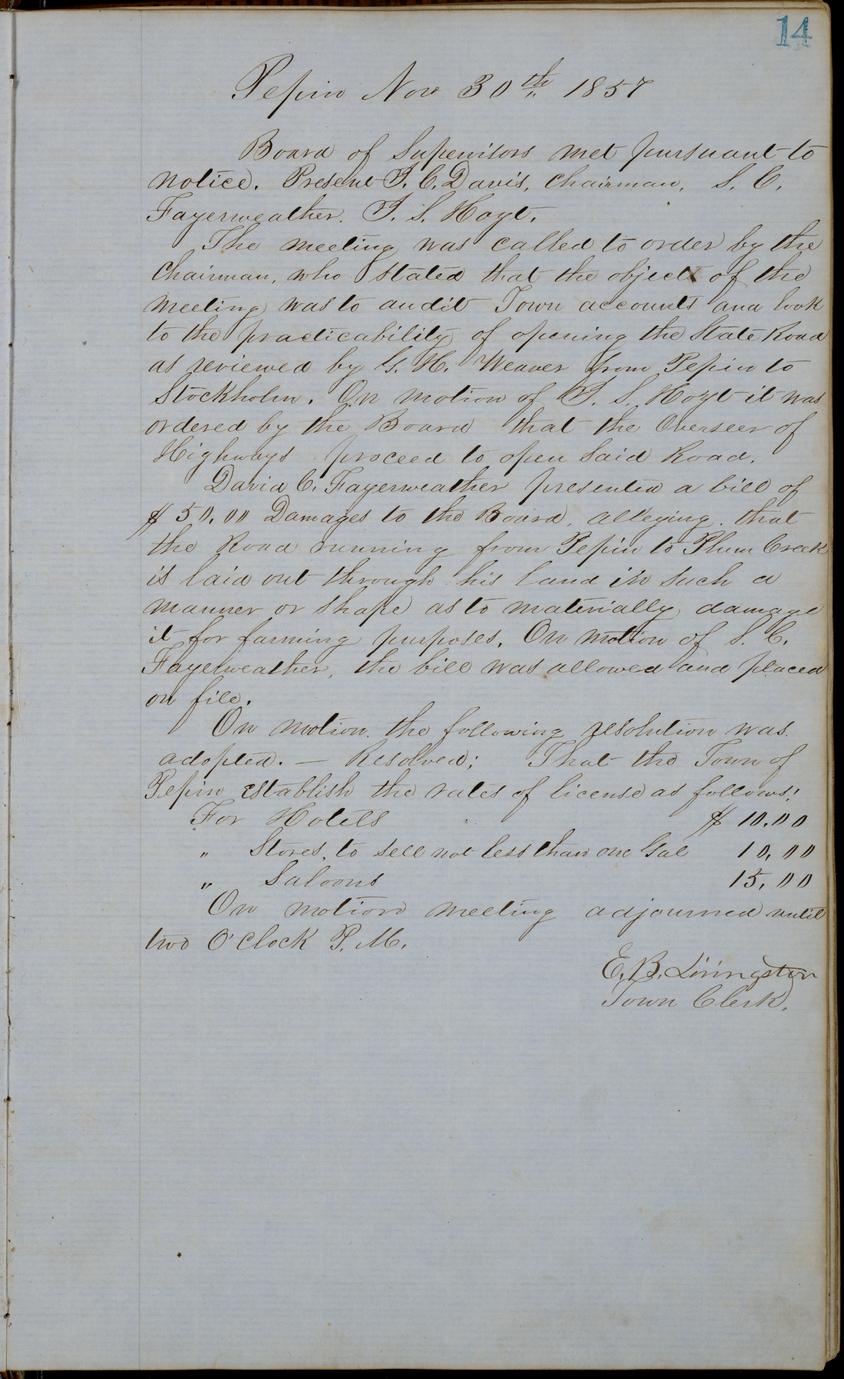 14
Pepin Nov 30th 1857
Board of Supervitors met pursuant to
notice. Present P. C. Davis, Chairman, S. C.
Fayerweather. P. S. Hoyt.
The meeting was called to order by the
Chairman, who stated that the object of the
meeting was to audit Town accounts and look
to the practicability of opening the State Road
as reviewed by G. H. Weaver from Pepin to
Stockholm. On motion of P. S. Hoyt it was
ordered by the Board that the Overseer of
Highways proceed to open said Road.
David C. Fayerweather presented a bill of
$50.00 Damages to the Board, alleging that
the Road running from Pepin to Plum Creek
is laid out through his land in such a
manner or shape as to materially damage
it for farming purposes. On motion of S. C.
Fayerweather, the bill was allowed and placed
on file.
On motion the following resolution was
adopted. — Resolved; That the Town of
Pepin establish the rates of license as follows:
For Hotels $10.00
" Stores, to sell not less than one Gal 10.00
" Saloons 15.00
On motion meeting adjourned until
two O'Clock P. M.
E. B. Livingston
Town Clerk.